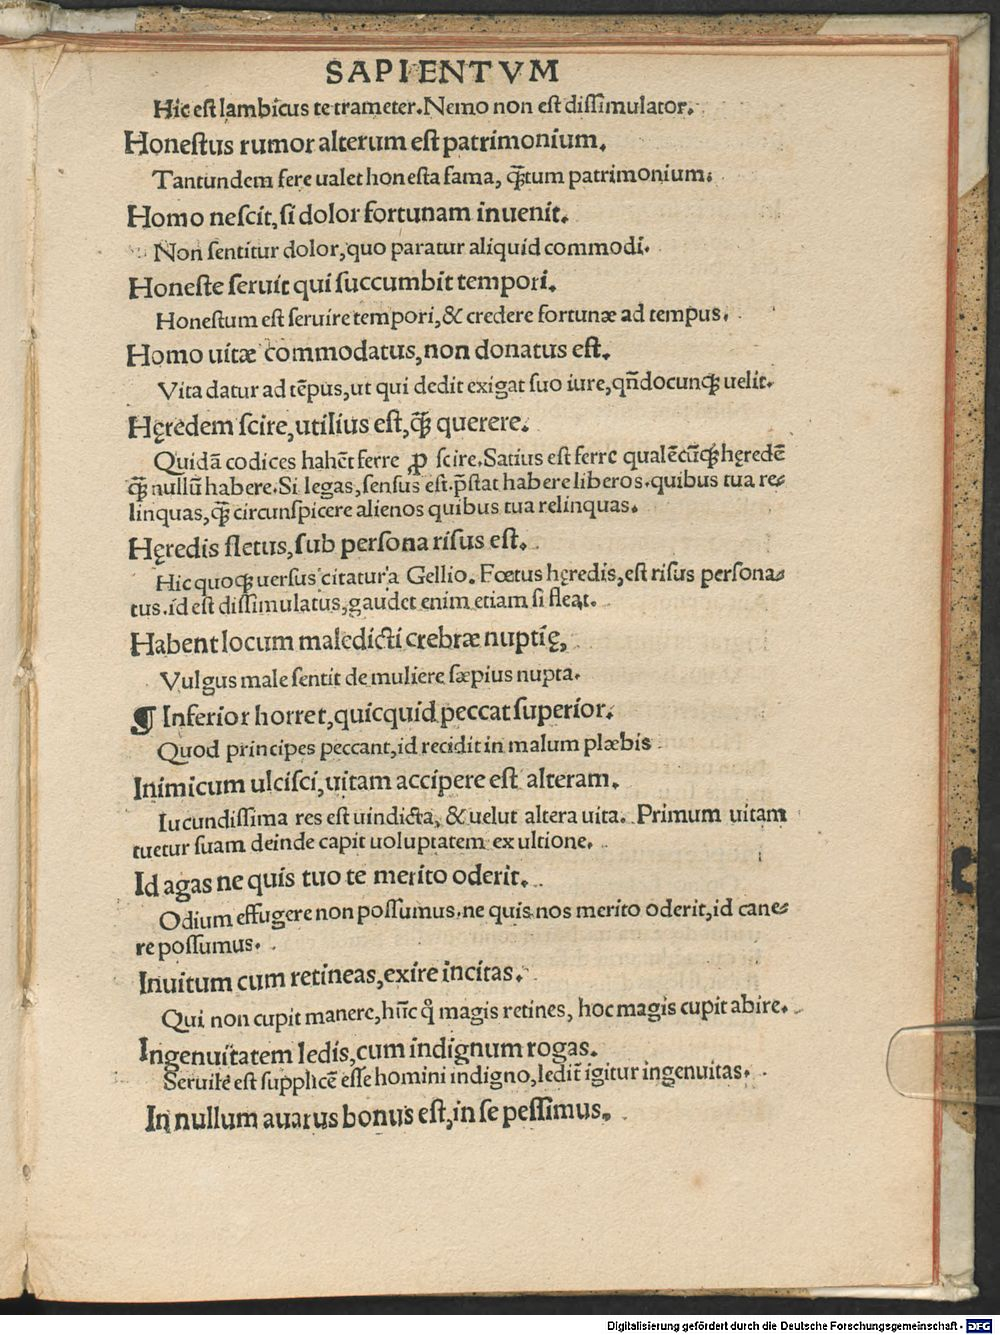 SAPIENTVM
Hic est Iambicus tetrameter. Nemo non est dissimulator.
Honestus rumor alterum est patrimonium.
Tantundem fere ualet honesta fama, q̃ꝫtum patrimonium.
Homo nescit, si dolor fortunam inuenit.
Non sentitur dolor, quo paratur aliquid commodi.
Honeste seruit qui succumbit tempori.
Honestum est seruire tempori, & credere fortunæ ad tempus.
Homo uitæ commodatus, non donatus est.
Vita datur ad tẽpus, ut qui dedit exigat suo iure, qñdocunqꝫ uelit.
Hęredem scire, utilius est, q̃ꝫ querere.
Quidã codices hahẽt ferre ꝓ scire. Satius est ferre qualẽcũqꝫ hęredẽ
q̃ꝫ nullũ habere. Si legas, sensus est. p̃stat habere liberos. quibus tua re⸗
linquas, q̃ꝫ circunspicere alienos quibus tua relinquas.
Hęredis fletus, sub persona risus est.
Hic quoqꝫ uersus citatur a Gellio. Fœtus hęredis, est risus persona⸗
tus. id est dissimulatus, gaudet enim etiam si fleat.
Habent locum maledicti crebræ nuptię,
Vulgus male sentit de muliere sæpius nupta.
¶ Inferior horret, quicquid peccat superior.
Quod principes peccant, id recidit in malum plæbis
Inimicum ulcisci, uitam accipere est alteram.
Iucundissima res est uindicta, & uelut altera uita. Primum uitam
tuetur suam deinde capit uoluptatem ex ultione.
Id agas ne quis tuo te merito oderit.
Odium effugere non possumus. ne quis nos merito oderit, id cane⸗
re possumus.
Inuitum cum retineas, exire incitas.
Qui non cupit manere, hũc q̊ magis retines, hoc magis cupit abire.
Ingenuitatem ledis, cum indignum rogas.
Seruile est supplicẽ esse homini indigno, ledit̃ igitur ingenuitas.
In nullum auarus bonus est, in se pessimus.
Digitalisierung gefördert durch die Deutsche Forschungsgemeinschaft - DFG